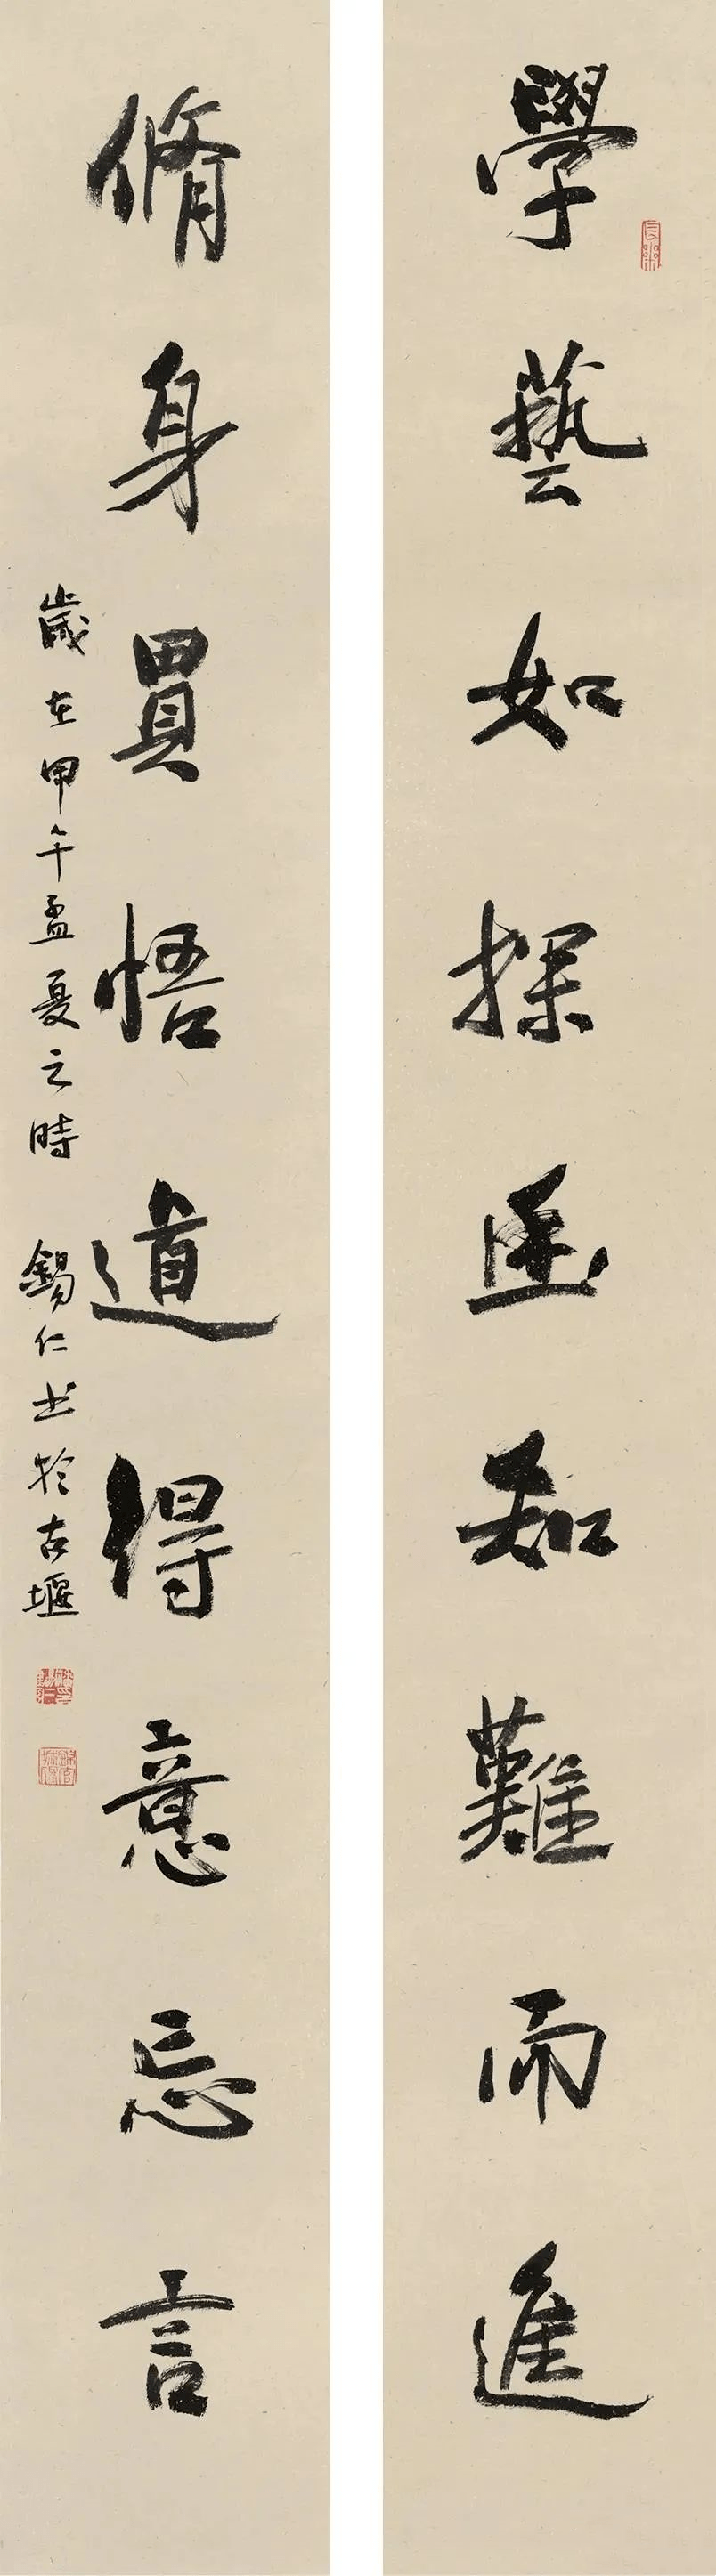 學藝如探知難而進
長樂
脩身貫悟道得意忘言
歲在甲午孟夏之時 錫仁书於古堰